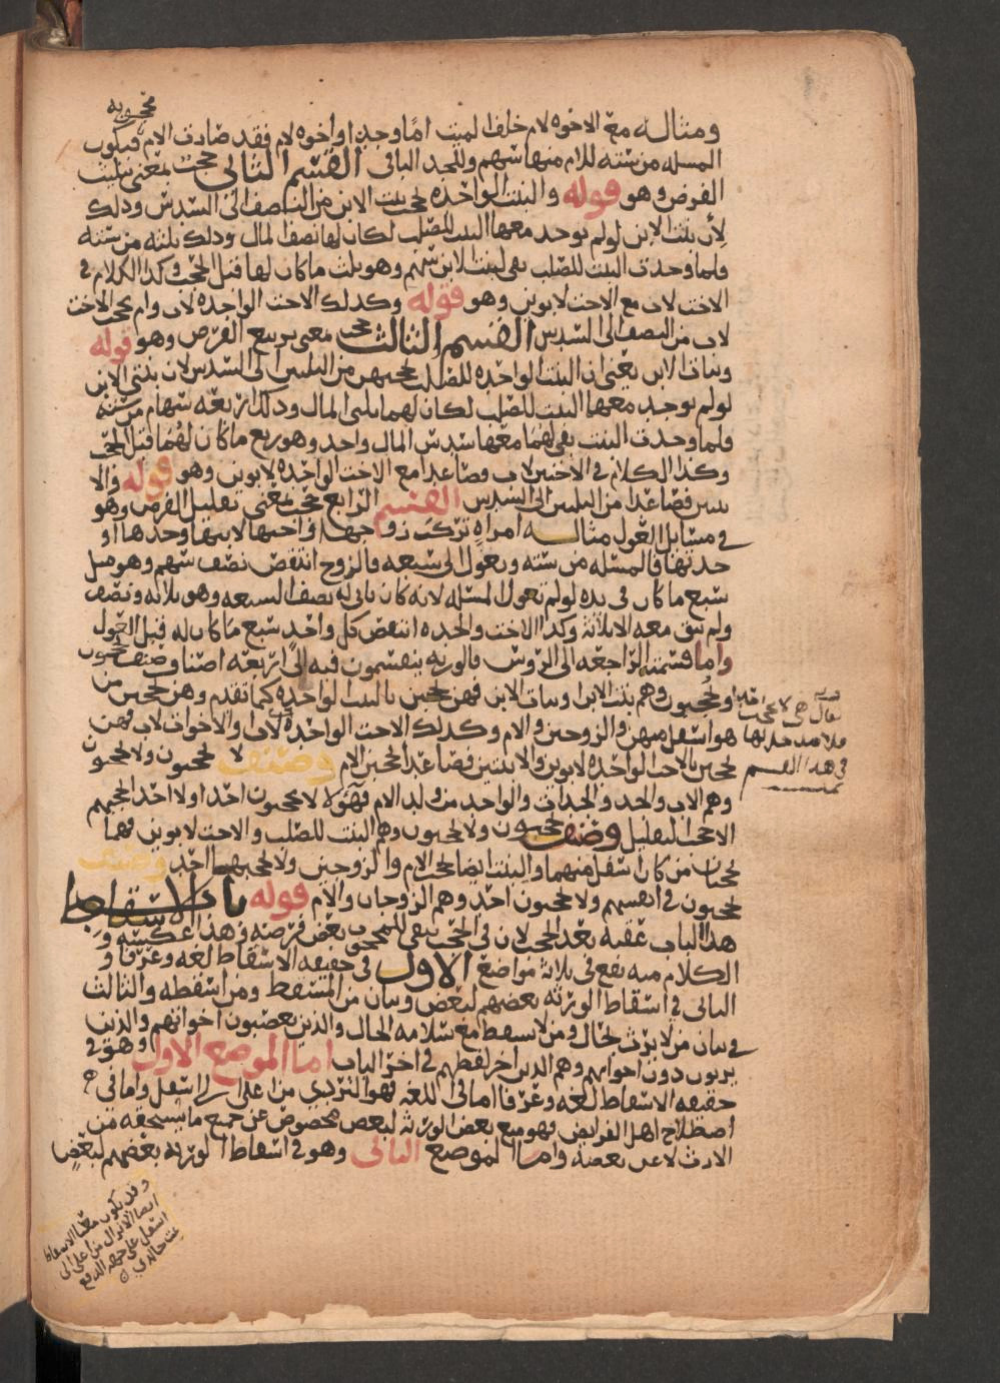 محجوبه
ومثاله مع الاخوه لام خلف الميت اما وجدا واخوه لام فقد صادفت الام فيكون
المسله من سته للام منها سهم وللجد الباقي القسم الثاني حجب بمعنى تثليث
الفرض وهو قوله والبنت الواحده تحجب بنت الابن من النصف الى السدس وذلك
لأن بنت الابن لو لم يوجد معها البنت للصلب لكان لها نصف المال وذلك ثلثه من سته
فلما وجدت البنت للصلب بقي لبنت الابن سهم وهو ثلث ما كان لها قبل الحجب وكذا الكلام في
الاخت لاب مع الاخت لابوين وهو قوله وكذلك الاخت الواحده لاب وام تحجب الاخت
لاب من النصف الى السدس القسم الثالث حجب معنى تربيع الفرض وهو قوله
وبنات الابن يعني ان البنت الواحده للصلب تحجبهن من الثلثين الى السدس لان بنتي الابن
لو لم يوجد معهما البنت للصلب لكان لهما ثلثي المال وذلك اربعه سهام من سته
فلما وجدت البنت بقي لهما معها سدس المال واحد وهو ربع ما كان لهما قبل الحجب
وكذا الكلام في الاختين لاب فصاعدا مع الاخت الواحده لابوين وهو قوله والا
ثنتين فصاعدا من الثلثين الى السدس القسم الرابع حجب بمعنى تقليل الفرض وهو
في مسايل العول مثاله امراه تركت زوجها واختها لابيها وحدها او
جدتها فالمسله من سته وتعول الى سبعه فالزوج انتقص نصف سهم وهو مثل
سبع ما كان في يده لو لم تعول المسله لانه كان ياتي له نصف السبعه وهو ثلاثه ونصف
ولم يبق معه الا ثلاثه وكذا الاخت والجده انتقص كل واحد سبع ما كان له قبل العول
واما قسمته الراجعه الى الروس فالورثه ينقسمون فيه الى اربعه اصناف وصنف يحجبون
ويحجبون وهم بنت الابن وبنات الابن فهن يحجبن بالبنت الواحده كما تقدم وهن يحجبن من
هو اسفل منهن والزوجين والام وكذلك الاخت الواحده لاب والاخوات لاب فهن
يحجبن بالاخت الواحده لابوين والاثنتين فصاعدا يحجبن الام وصنف لا يحجبون ولا يحجبون
وهم الاب والجد والجدات والواحد من ولد الام فهولا لا يحجبون احدا ولا احد يحجبهم
الا حجب التقليل وصنف يحجبون ولا يحجبون وهم البنت للصلب والاخت لابوين فهما
يحجبان من كان اسفل منهما والبنت ايضا تحجب الام والزوجين ولا يحجبهما احد وصنف
يحجبون في انفسهم ولا يحجبون احد وهم الزوجان والام قوله باب الاسقاط
هذا الباب عقبه بعد الحجب لان في الحجب يبقى للمحجوب بعض فرضه وهذا عكسه و
الكلام منه يقع في ثلاثه مواضع الاول في حقيقه الاسقاط لغه وعرفا و
الثاني في اسقاط الورثه بعضهم لبعض وبيان من المسقط ومن اسقطه والثالث
في بيان من لا يرث بحال ومن لا يسقط مع سلامه الحال والذين يعصبون اخواتهم والذين
يرثون دون اخواتهم وهم الذين اخر لفظهم في اخر الباب اما الموضع الاول وهو في
حقيقه الاسقاط لغه وعرفا اما في اللغه فهو التردي من اعلى الى اسفل واما في
اصطلاح اهل الفرايض فهو منع بعض الورثه لبعض مخصوص عن جميع ما يستحقه من
الارث لا عن بعضه واما الموضع الثاني وهو في اسقاط الورثه بعضهم لبعض
في هذا القسم
وقد يكون معنا الاسقاط
ايضا الانزال من اعلى الى
اسفل على جهه الدفع